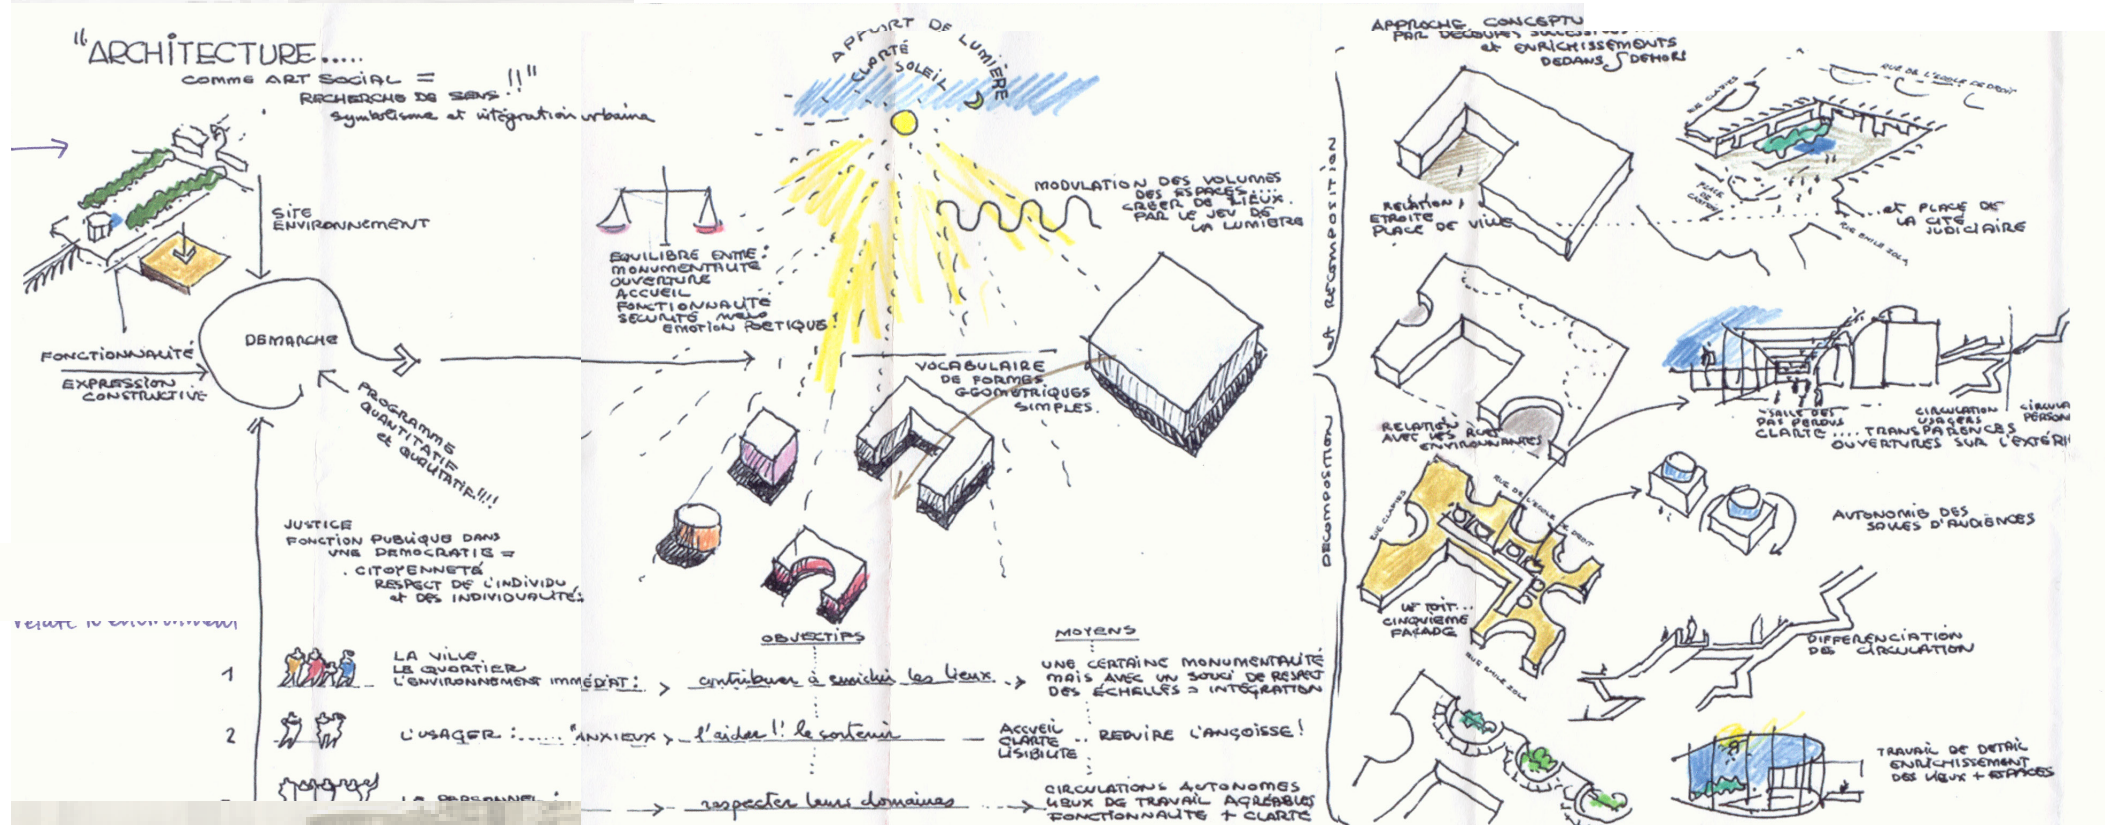 "ARCHITECTURE.....
COMME ART SOCIAL =
RECHERCHE DE SENS.!!"
symbolisme et intégration urbaine
SITE
ENVIRONNEMENT
DEMARCHE
FONCTIONNALITÉ
EXPRESSION
CONSTRUCTIVE
PROGRAMME
QUANTITATIF
et QUALITATIF!!!!
JUSTICE
FONCTION PUBLIQUE DANS
UNE DEMOCRATIE =
. CITOYENNETÉ
RESPECT DE L'INDIVIDU
et DES INDIVIDUALITÉS
relate to environment
1
LA VILLE
LE QUARTIER
L'ENVIRONNEMENT IMMÉDIAT :
2
L'USAGER :...... "ANXIEUX
LE PERSONNEL :
APPORT DE LUMIÈRE
CLARTÉ
SOLEIL
EQUILIBRE ENTRE :
MONUMENTALITÉ
OUVERTURE
ACCUEIL
FONCTIONNALITÉ
SECURITÉ mais
EMOTION POETIQUE.
MODULATION DES VOLUMES
DES ESPACES....
CREER DE LIEUX.
PAR LE JEU DE
LA LUMIÈRE
VOCABULAIRE
DE FORMES
GÉOMÉTRIQUES
SIMPLES.
OBJECTIFS
contribuer à enrichir les lieux
l'aider!! le soutenir
respecter leurs domaines
MOYENS
UNE CERTAINE MONUMENTALITÉ
MAIS AVEC UN SOUCI DE RESPECT
DES ÉCHELLES = INTÉGRATION
ACCUEIL
CLARTE
LISIBILITE
REDUIRE L'ANGOISSE!
CIRCULATIONS AUTONOMES
LIEUX DE TRAVAIL AGRÉABLES
FONCTIONNALITÉ + CLARTÉ
et RECOMPOSITION
DECOMPOSITION
APPROCHE CONCEPTU
PAR DECOUPES SUCCESSIVES
et ENRICHISSEMENTS
DEDANS DEHORS
RELATION
ETROITE
PLACE DE VILLE
RUE CLAPIES
RUE DE L'ECOLE DE DROIT
PLACE
DE
RUE EMILE ZOLA
... et PLACE DE
LA CITÉ
JUDICIAIRE
RELATION
AVEC LES RUES
ENVIRONNANTES
SALLE DES
PAS PERDUS
CLARTE .... TRANSPARENCES
OUVERTURES SUR L'EXTÉRI
CIRCULATION
USAGERS
CIRCULA
PERSON
RUE CLAPIES
RUE DE L'ECOLE DE DROIT
UN TOIT...
CINQUIEME
FAÇADE
RUE EMILE ZOLA
AUTONOMIE DES
SALLES D'AUDIENCES
DIFFERENCIATION
DES CIRCULATION
TRAVAIL DE DETAIL
ENRICHISSEMENT
DES LIEUX + ESPACES